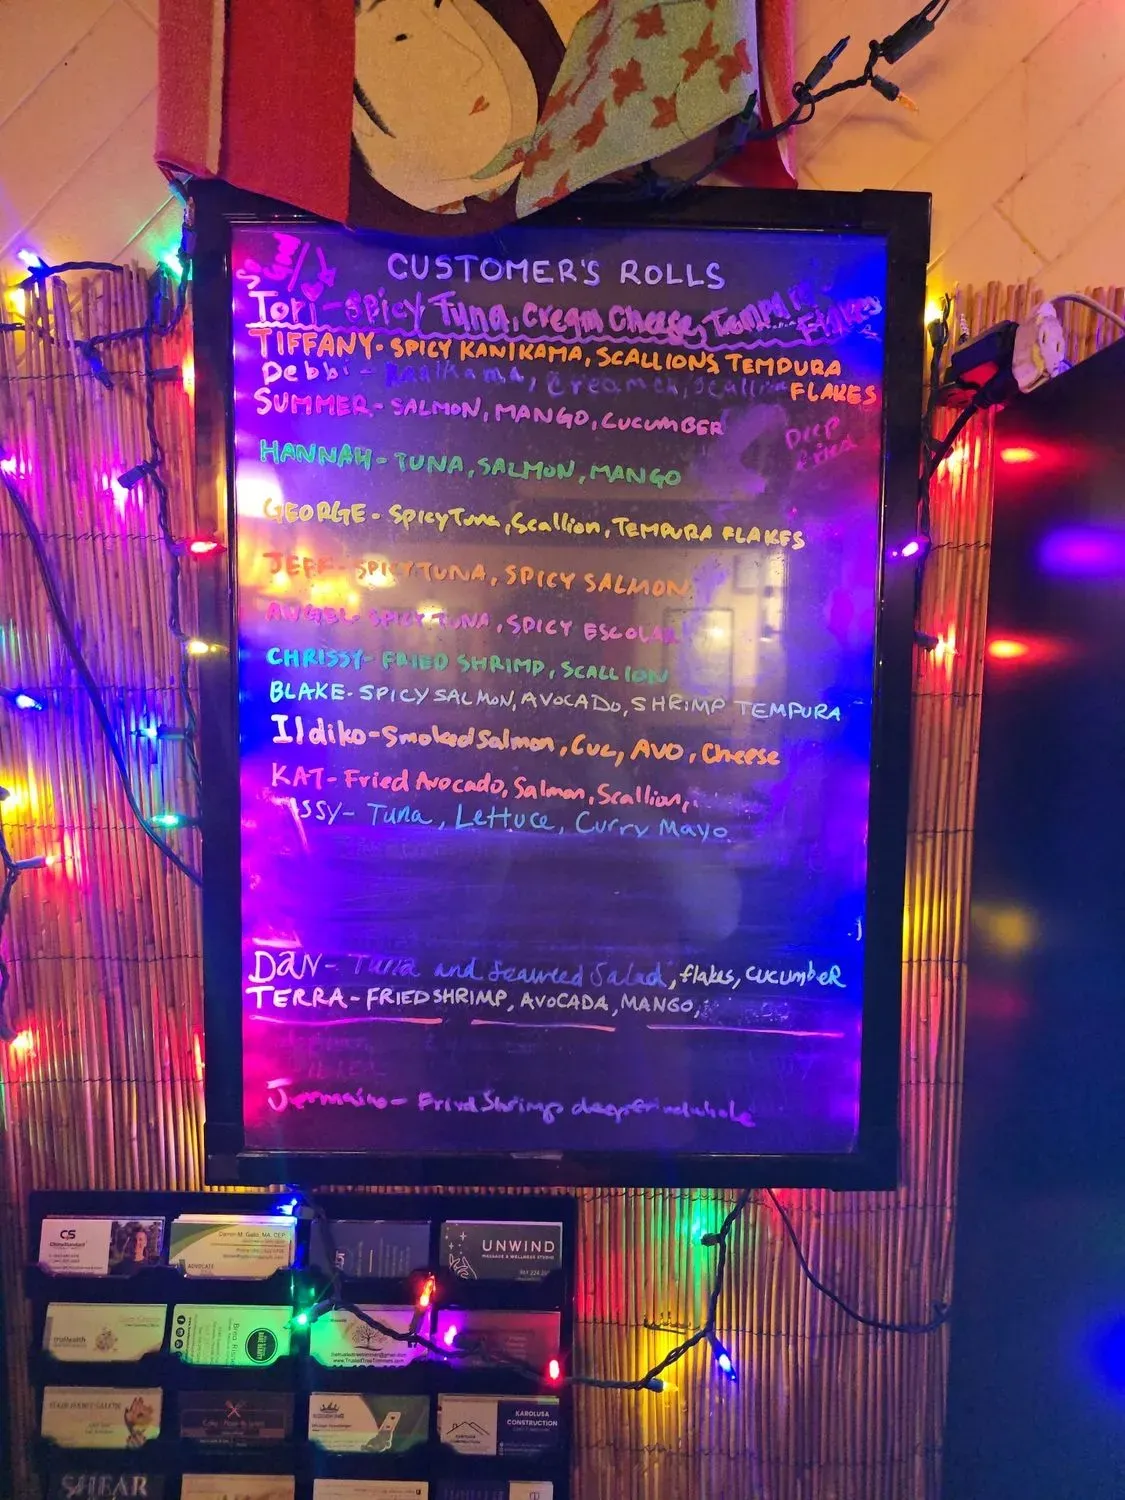 CUSTOMER'S ROLLS
Tori - Spicy Tuna, Cream Cheese, Tempura Flakes
TIFFANY - SPICY KANIKAMA, SCALLIONS, TEMPURA FLAKES
Debbi - Kanikama, Cream Ch, Scallion
SUMMER - SALMON, MANGO, CUCUMBER
Deep Fried
HANNAH - TUNA, SALMON, MANGO
GEORGE - Spicy Tuna, Scallion, TEMPURA FLAKES
JEFF - SPICY TUNA, SPICY SALMON
ANGEL - SPICY TUNA, SPICY ESCOLAR
CHRISSY - FRIED SHRIMP, SCALLION
BLAKE - SPICY SALMON, AVOCADO, SHRIMP TEMPURA
Ildiko - Smoked Salmon, Cuc, AVO, Cheese
KAT - Fried Avocado, Salmon, Scallion,
SSY - Tuna, Lettuce, Curry Mayo
DAN - Tuna and Seaweed Salad, flakes, CUCUMBER
TERRA - FRIED SHRIMP, AVOCADA, MANGO,
Fried Shrimp
CS
ADVOCATE
UNWIND
MASSAGE & WELLNESS STUDIO
www.TrustedTreeTrimmers.com
KAROLUSA
CONSTRUCTION
SHEAR